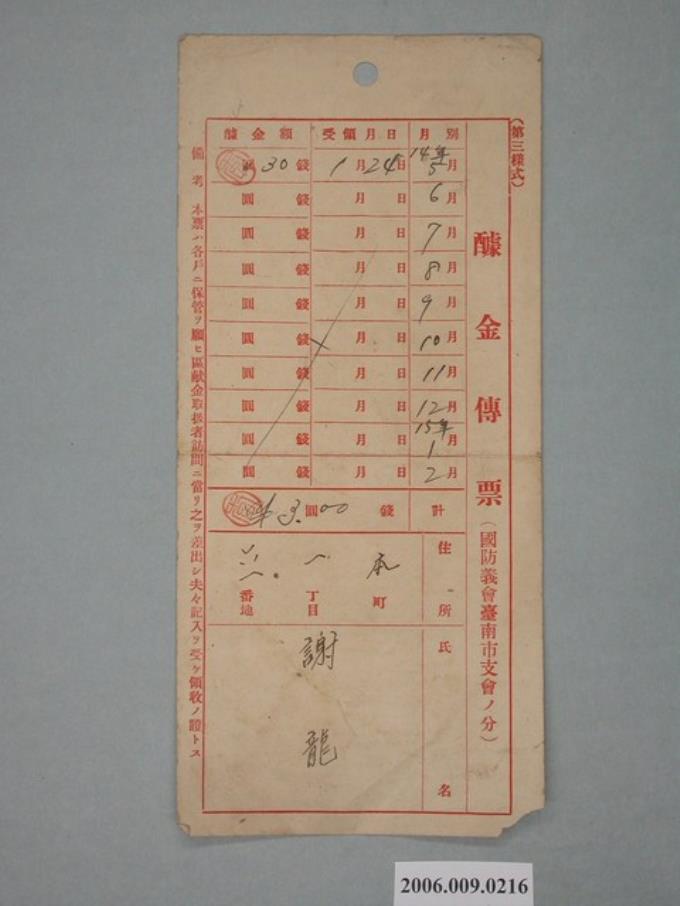 (第三樣式)
醵金傳票(國防義會臺南市支會ノ分)
月別 受領月日 醵金額
14年5月 1月24日 30錢
6月 月 日 圓 錢
7月 月 日 圓 錢
8月 月 日 圓 錢
9月 月 日 圓 錢
10月 月 日 圓 錢
11月 月 日 圓 錢
12月 月 日 圓 錢
15年1月 月 日 圓 錢
2月 月 日 圓 錢
計 3圓00錢
住所 本町 一丁目 番地
氏名 謝龍
備考 本票ハ各戶ニ保管ヲ願ヒ區獻金取扱者訪問ニ當リ之ヲ差出シ夫々記入ヲ受ケ領收ノ證トス
2006.009.0216